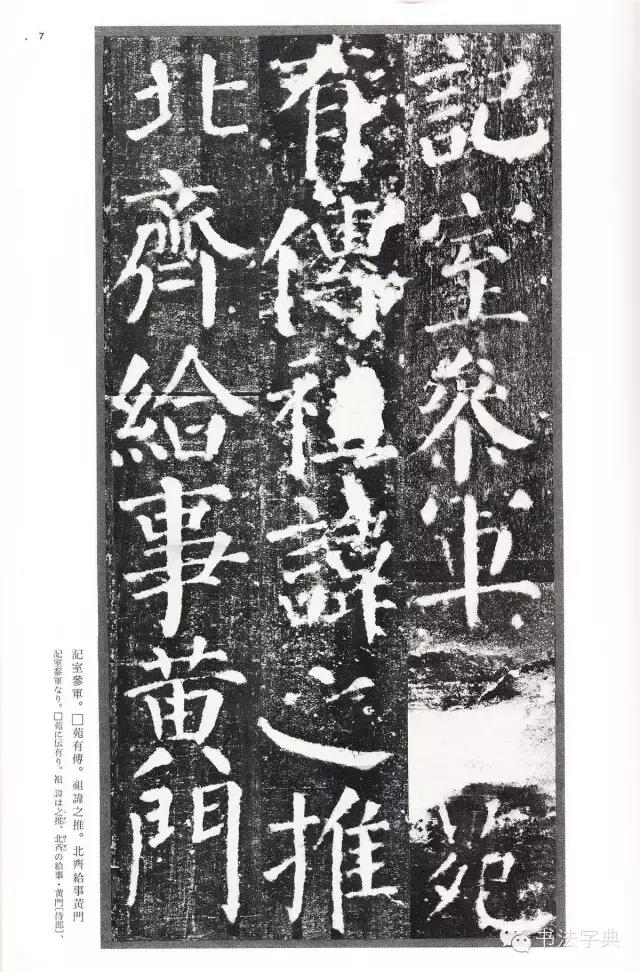 7
記室參軍 苑
有傳祖諱之推
北齊給事黃門
記室參軍。□苑有傳。祖諱之推。北齊給事黃門
記室參軍なり。□苑に伝有り。祖 諱は之推、北斉の給事・黄門〔侍郎〕、
书法字典